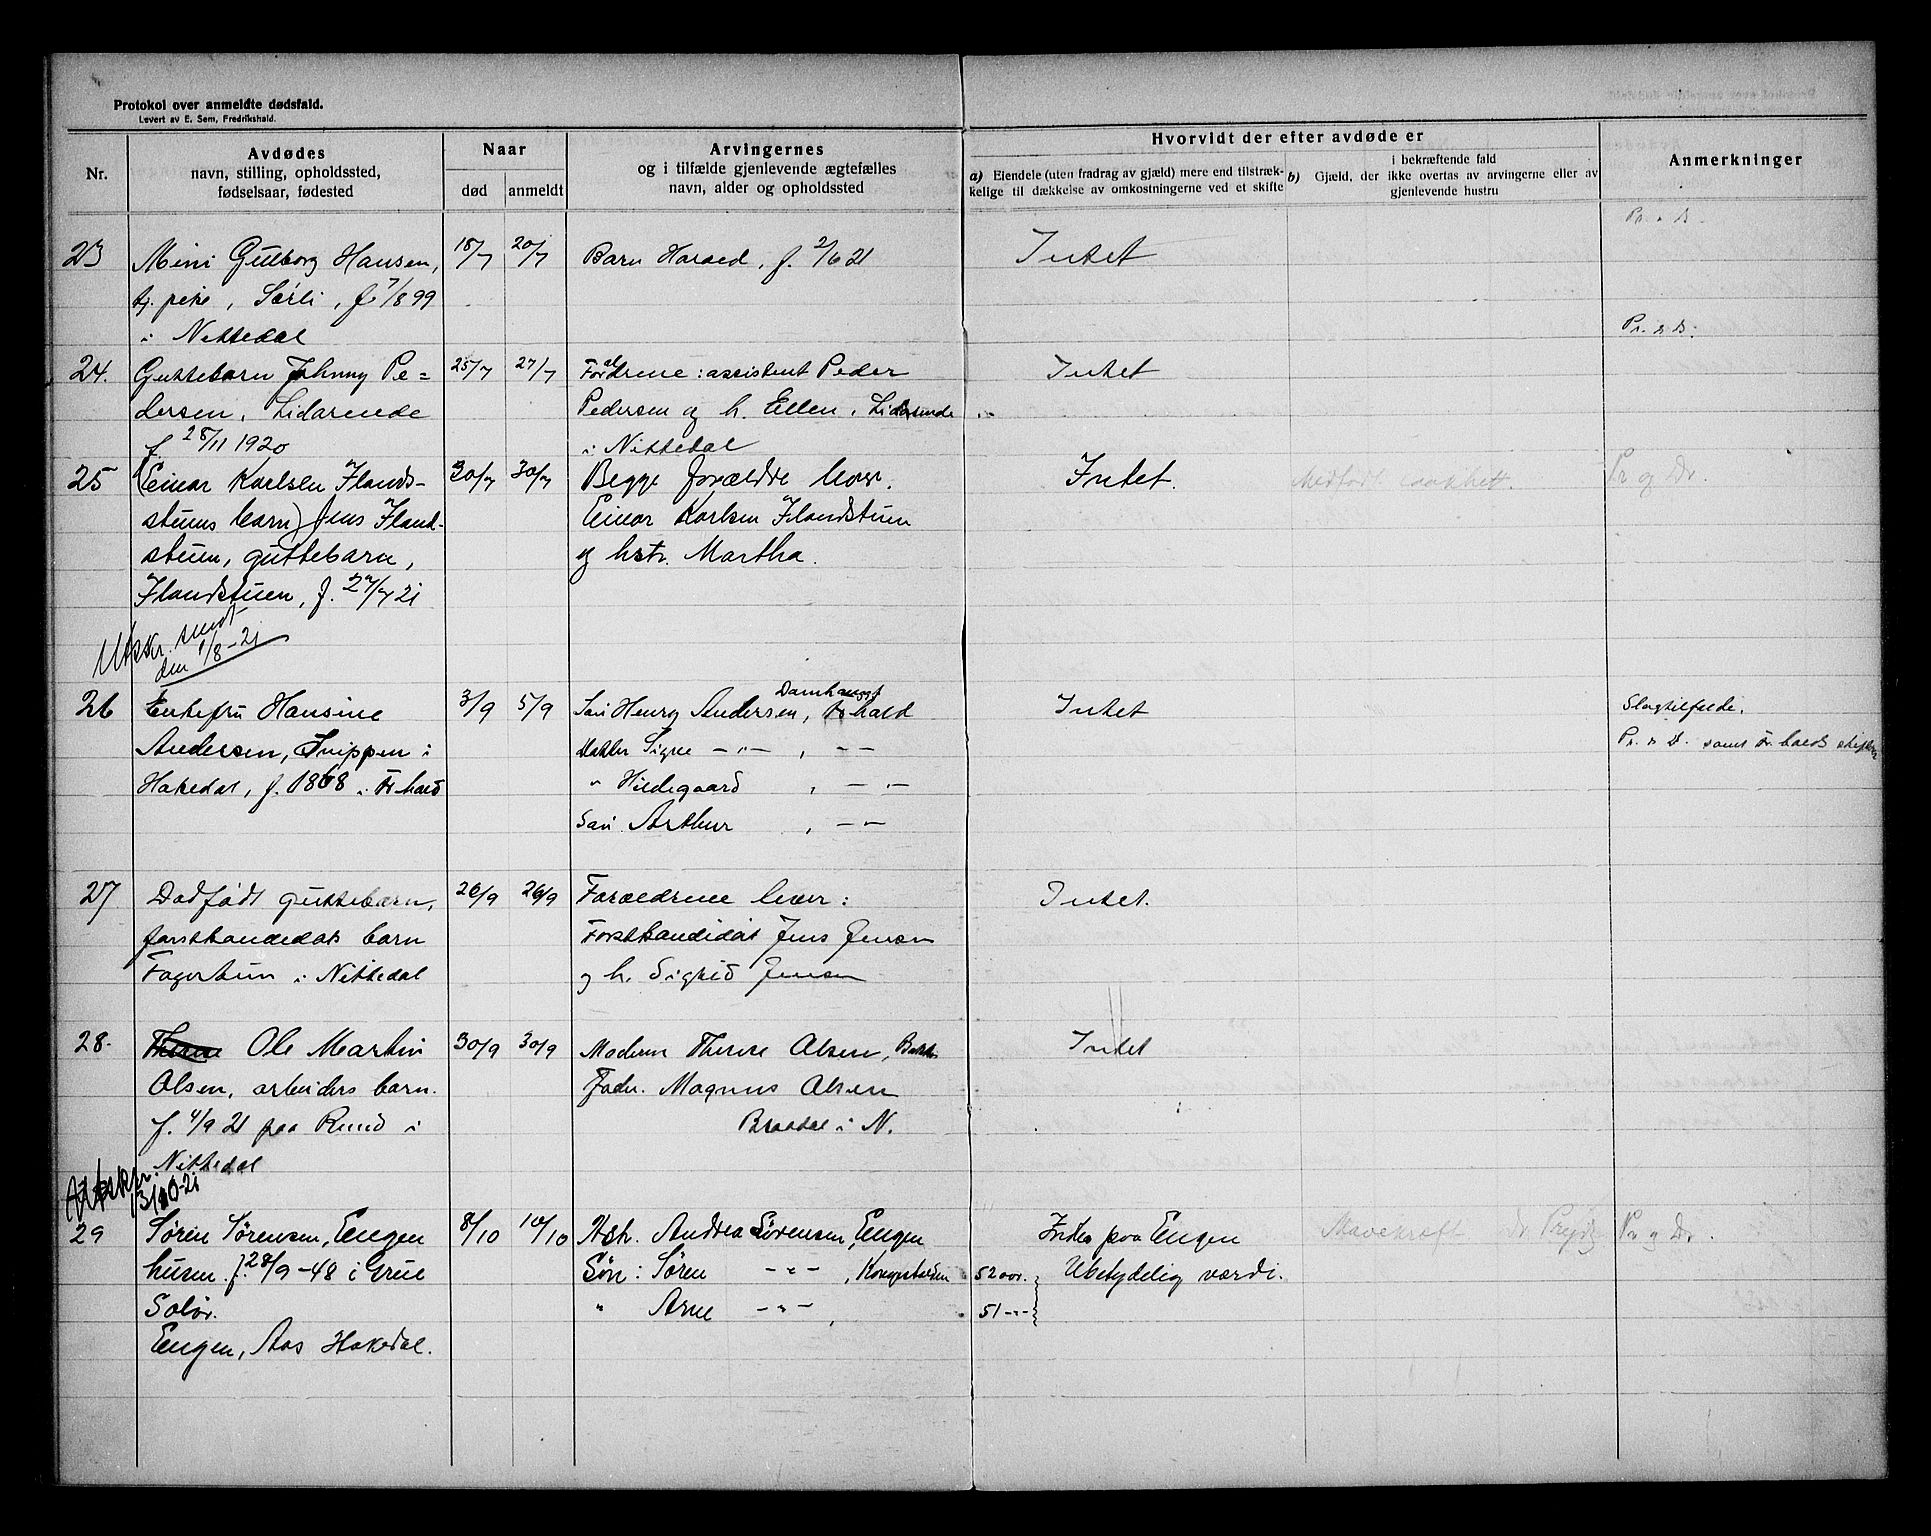 Protokol over anmeldte dødsfald.
Levert av E. Sem, Fredrikshald.
Nr.
Avdødes
navn, stilling, opholdssted,
fødselsaar, fødested
Naar
død
anmeldt
Arvingernes
og i tilfælde gjenlevende ægtefælles
navn, alder og opholdssted
Hvorvidt der efter avdøde er
a) Eiendele (uten fradrag av gjæld) mere end tilstræk-
kelige til dækkelse av omkostningerne ved et skifte
b) Gjæld, der i bekræftende fald
ikke overtas av arvingerne eller av
gjenlevende hustru
Anmerkninger
23 Mimi Gulborg Hansen, 18/7 20/7 Barn Harald, f. 2/6 21 Intet
tj. pike, Sørli, f. 7/8 99
i Nittedal
24. Guttebarn Johnny Pe= 25/7 27/7 Forældrene: assistent Peder Intet
dersen, Lidarende Pedersen og h. Ellen, Lidarende
f. 28/11 1920 i Nittedal
25 (Einar Karlsen Flands- 30/7 30/7 Begge forældre lever. Intet. Medfødt svakhet. Pr og Dr.
stuens barn) Jens Fland- Einar Karlsen Flandstuen
stuen, guttebarn, og hstr. Martha.
Flandstuen, f. 27/7 21
Utskr. sendt
den 1/8-21
26 Enkefru Hansine 3/9 5/9 Søn Henry Andersen, Fr.hald Intet Slagtilfælde.
Andersen, Snippen i Datter Signe -"-, -"-
Hakedal, f. 1868 i Fr.hald " Hildegaard, -"-
Søn Arthur, -"-
27 Dødfødt guttebarn, 26/9 26/9 Forældrene lever: Intet.
forstkandidats barn Forstkandidat Jens Jensen
Fagertun i Nittedal og h. Sigrid Jensen
28. Ole Martin 30/9 30/9 Moderen Therese Olsen, Intet
Olsen, arbeiders barn. Fader. Magnus Olsen
f. 4/9 21 paa Rund i i N.
Nittedal
Utskr.
3/10-21
29 Søren Sørensen, Engen 8/10 10/10 Andrea Sørensen, Engen Intet paa Engen Mavekræft Pr og Dr.
husm. f. 28/9-48 i Grue Søn: Søren -"-, 52 aar. Ubetydelig værdi.
Solør. " Arne -"-, 51 -"-
Engen, Aas Hakedal.